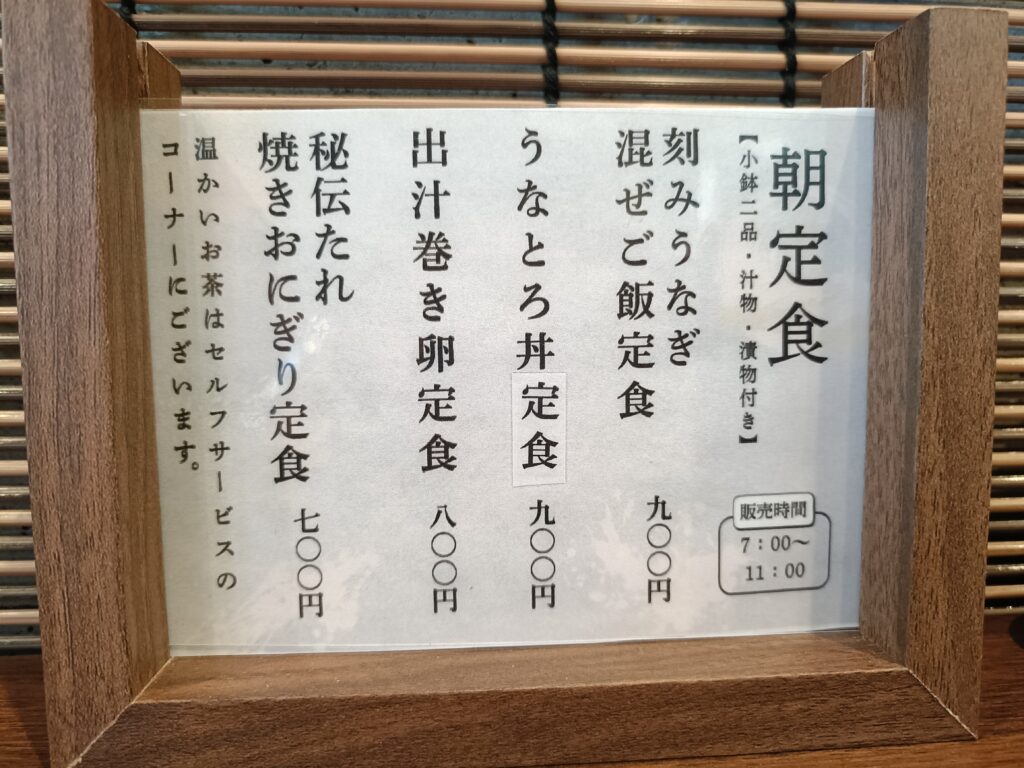 朝定食
【小鉢二品・汁物・漬物付き】
販売時間
7:00～
11:00
刻みうなぎ
混ぜご飯定食
九〇〇円
うなとろ丼定食
九〇〇円
出汁巻き卵定食
八〇〇円
秘伝たれ
焼きおにぎり定食
七〇〇円
温かいお茶はセルフサービスの
コーナーにございます。